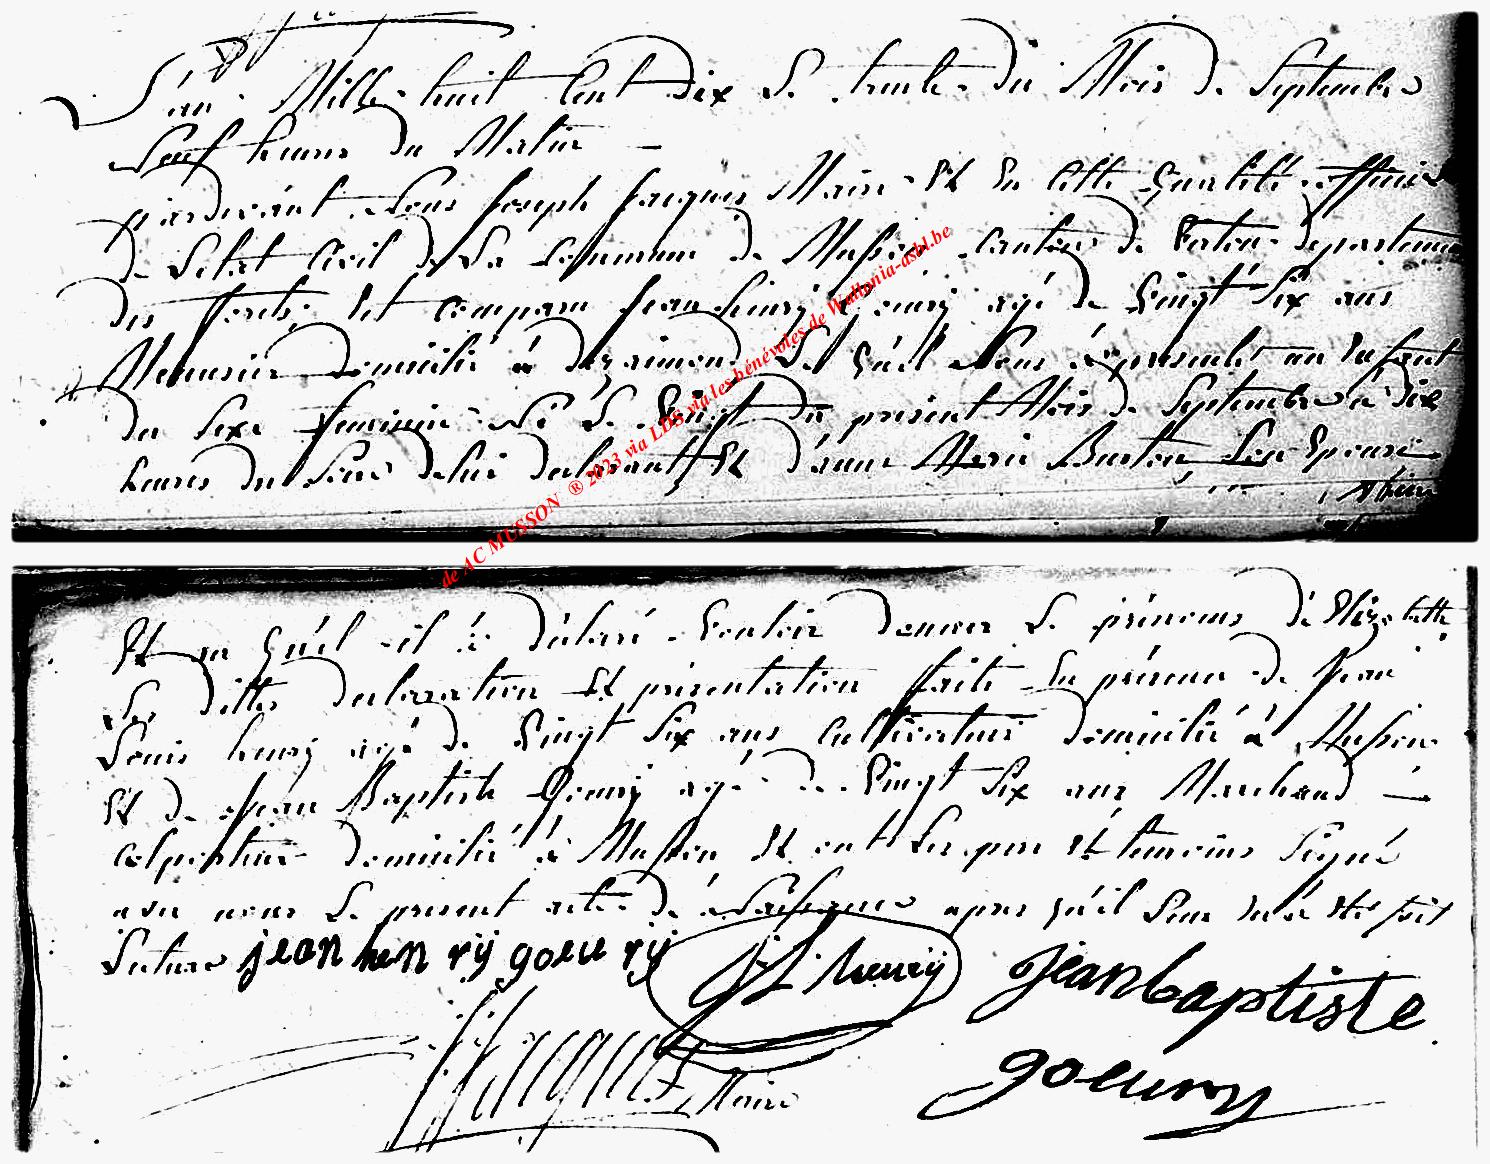 L'an Mille huit Cent dix Le trente du Mois de Septembre
Neuf heures du Matin —
pardevant Nous Joseph Jacques Maire Et En Cette Qualité officier
de Letat Civil de La Commune de Musson canton de Virton departement
des forets, Est comparu Jean henry Goeury agé de Vingt Six ans
Menusier domicilié à Le quel Nous à presenté un Enfant
du Sexe feminin Né Le Vingt du present Mois de Septembre à dix
heures du Soir de lui declarant Et d'anne Marie Burton Son Epouse
Et au quel il à déclaré Vouloir donner Le prénoms de Elizabette
Les dittes declaration Et présentation faite En présence de Jean
Louis henry agé de Vingt Six ans Cultivateur domicilié à Musson
Et de Jean Baptiste Goeury agé de Vingt Six ans Marchand —
colporteur domicilié à Musson Et ont Les pere Et temoins Signé
avec nous Le present acte de Naissance apres qu'il Leur En à Eté fait
Lecture jean hen rij goeu rij
J L henry
jean baptiste
goeury
J Jacques Maire
de AC MUSSON ® 2023 via LDS via les bénévoles de Wallonia-asbl.be